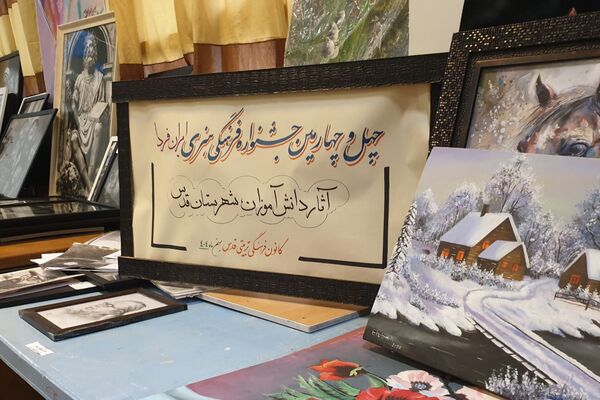 چهل و چهارمین جشنواره فرهنگی هنری ایران فردا
آثار دانش‌آموزان شهرستان قدس
کانون فرهنگی تربیتی قدس